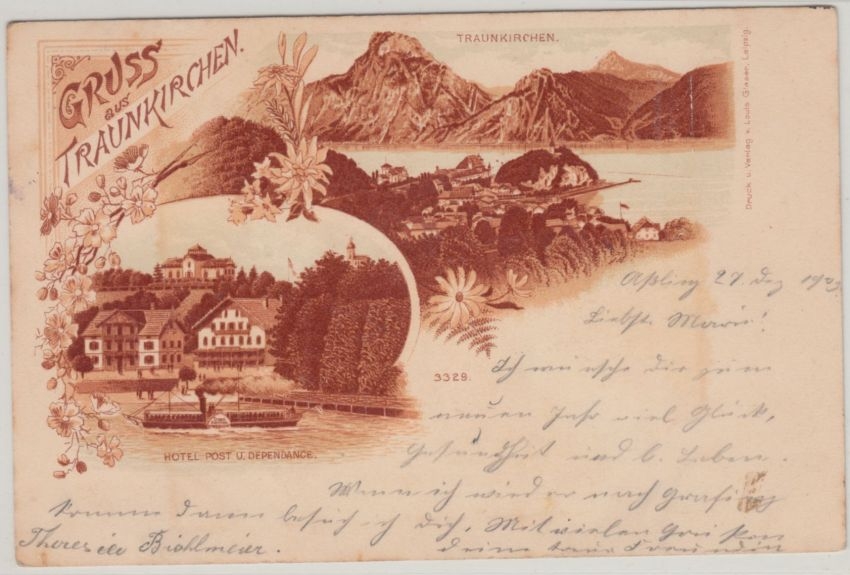 GRUSS
aus
TRAUNKIRCHEN.
TRAUNKIRCHEN.
Druck u. Verlag v. Louis Glaser, Leipzig.
3329.
HOTEL POST U. DEPENDANCE.
Aßling 27. Dez
Liebste Marie!
Ich wünsche dir zum
neuen Jahr viel Glück,
Gesundheit und l. Leben.
Wenn ich wieder nach Grafing
komme dann besuch ich Dich, Mit vielen Grüßen
deine treue Freundin
Therese Bichlmeier.